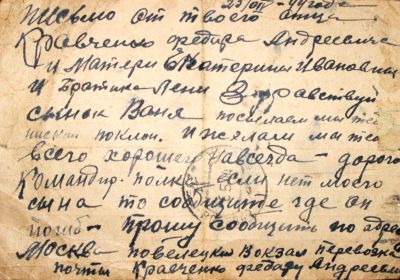 23/VII - 44 года
Письмо от твоего отца
Кравченко Федира Андреевича
и Матери Екатерини Ивановни
и Братика Лени Здравствуй
сынок Ваня посилаем ми теб
ниский поклон. И желаем ми теб
всего хорошего навсегда - дорого
Командир полка если нет моего
сына то сообщите где он
погиб - прошу сообщить по адре
Москва повелецки Вокзал перевозка
почты Кравченко Федору Андрееви